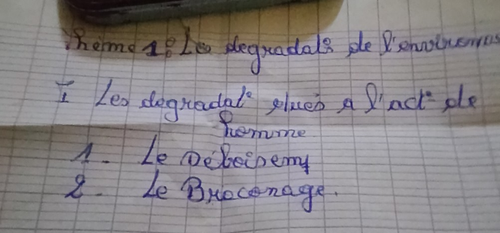 Thème 1: Les degradat° de l'environnem
I Les degradat° dues à l'act° de
homme
1- Le Déboisemt
2- Le Braconage.